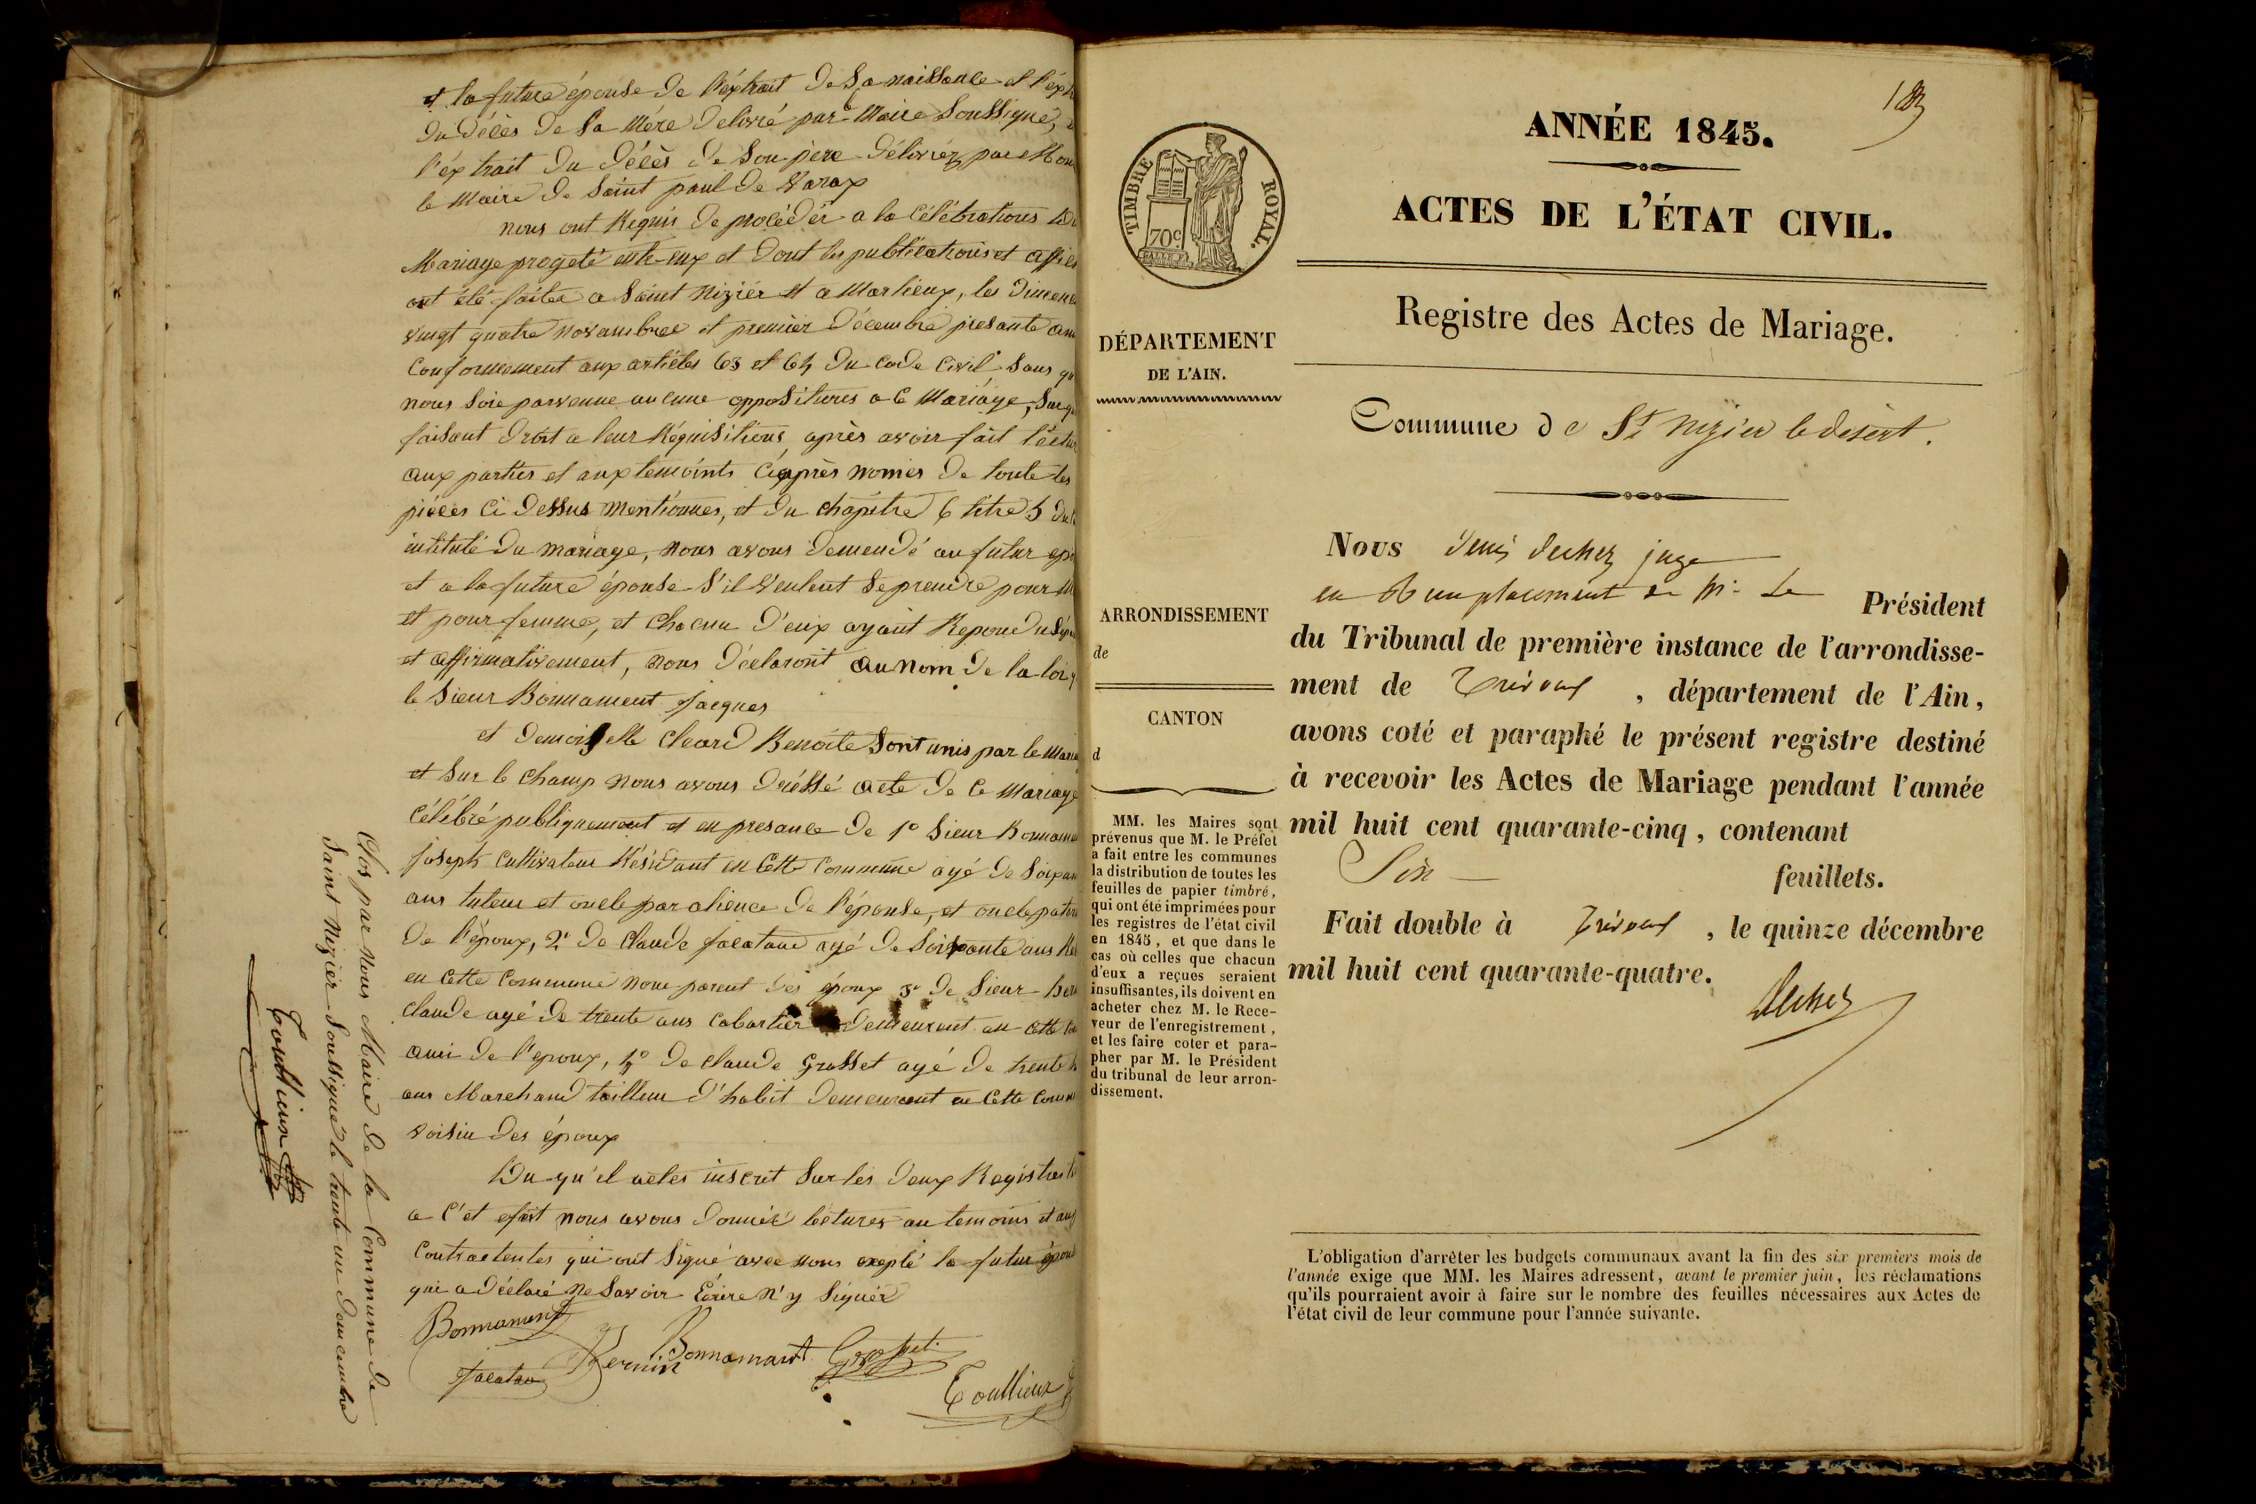 et la future épouse de l'éxtrait de Sa naissance et l'éxt
du décès de Sa Mére délivré par le Maire Soussigné, 
l'éxtrait du décès de Son père délivréz par Mon
le Maire de Saint paul de Varax
nous ont Requis de procédér a la Célébrations du
Mariage projeté entr-eux et dont les publications et affich
ont été faites a Saint Niziér et a Marlieux, les dimenc
vingt quatre novambree et premiér décembre presante ann
Conformement aux artícles 63 et 64 du code Civil Sans qu
nous Soie parvenue aucune oppositions a ce Mariáge, Surqu
faisant droit a leur Réquisitions, après avoir fait léctur
aux parties et aux temoints Ciaprès només de toute les
piéces Ci dessus mentionnés, et du chapitre 6 titre 5 du
intitulé du mariage, nous avons demendé au futur epou
et a la future épouse S'il veulent Seprendre pour M
et pour femme, et chacun d'eux ayant Repondu Sépa
et affirmativement, nous déclaront au nom de la loi q
le Sieur Bonnament Jacques
et demoiselle cleard Benoite Sont unis par le Maria
et Sur le champ nous avons dréssé acte de ce Mariage
Célébré publiquement et en presance de 1° Sieur Bonname
Joseph Cultivateur Résidant en Cette Commune agé de Soixan
ans tuteur et oncle par alience de l'épouse, et oncle pater
de l'époux, 2° de Claude Jacatau agé de Soixante ans Re
en Cette Commune non parent des époux 3° de Sieur Ber
Claude agé de trente ans Cabartiér demeurent en Cette
ami de l'epoux, 4° de Claude Grosset agé de trente
ans Marchand tailleur d'habit demeurant en Cette Comm
voisin des époux
Du qu'el actes inscrit Sur les deux Registres
a C'et efet nous avons donnée léctures au temoins et aux
Contractentes qui ont Signé avec nousexepté la futur épou
qui a déclaré ne Savoir Écrire n'y Signér
Bonnament
Bernin
Bonnamant
Grosset
Jacatau
Toullieux
Clos par Nous Maire de la Commune de
Saint Nizier Soussigné le trente un decembre
Toullieux
183
ANNÉE 1845.
ACTES DE L'ÉTAT CIVIL.
TIMBRE ROYAL.
70c
Registre des Actes de Mariage.
DÉPARTEMENT
DE L'AIN.
Commune de St Nizier le désert.
Nous Denis Decher juge
en Remplacement de Mr Le Président
du Tribunal de première instance de l'arrondisse-
ment de Trévoux, département de l'Ain,
avons coté et paraphé le présent registre destiné
à recevoir les Actes de Mariage pendant l'année
mil huit cent quarante-cinq, contenant
Six feuillets.
Fait double à Trévoux, le quinze décembre
mil huit cent quarante-quatre.
Decher
ARRONDISSEMENT
de
CANTON
d
MM. les Maires sont
prévenus que M. le Préfet
a fait entre les communes
la distribution de toutes les
feuilles de papier timbré,
qui ont été imprimées pour
les registres de l'état civil
en 1845, et que dans le
cas où celles que chacun
d'eux a reçues seraient
insuffisantes, ils doivent en
acheter chez M. le Rece-
veur de l'enregistrement,
et les faire coter et para-
pher par M. le Président
du tribunal de leur arron-
dissement.
L'obligation d'arrêter les budgets communaux avant la fin des six premiers mois de
l'année exige que MM. les Maires adressent, avant le premier juin, les réclamations
qu'ils pourraient avoir à faire sur le nombre des feuilles nécessaires aux Actes de
l'état civil de leur commune pour l'année suivante.